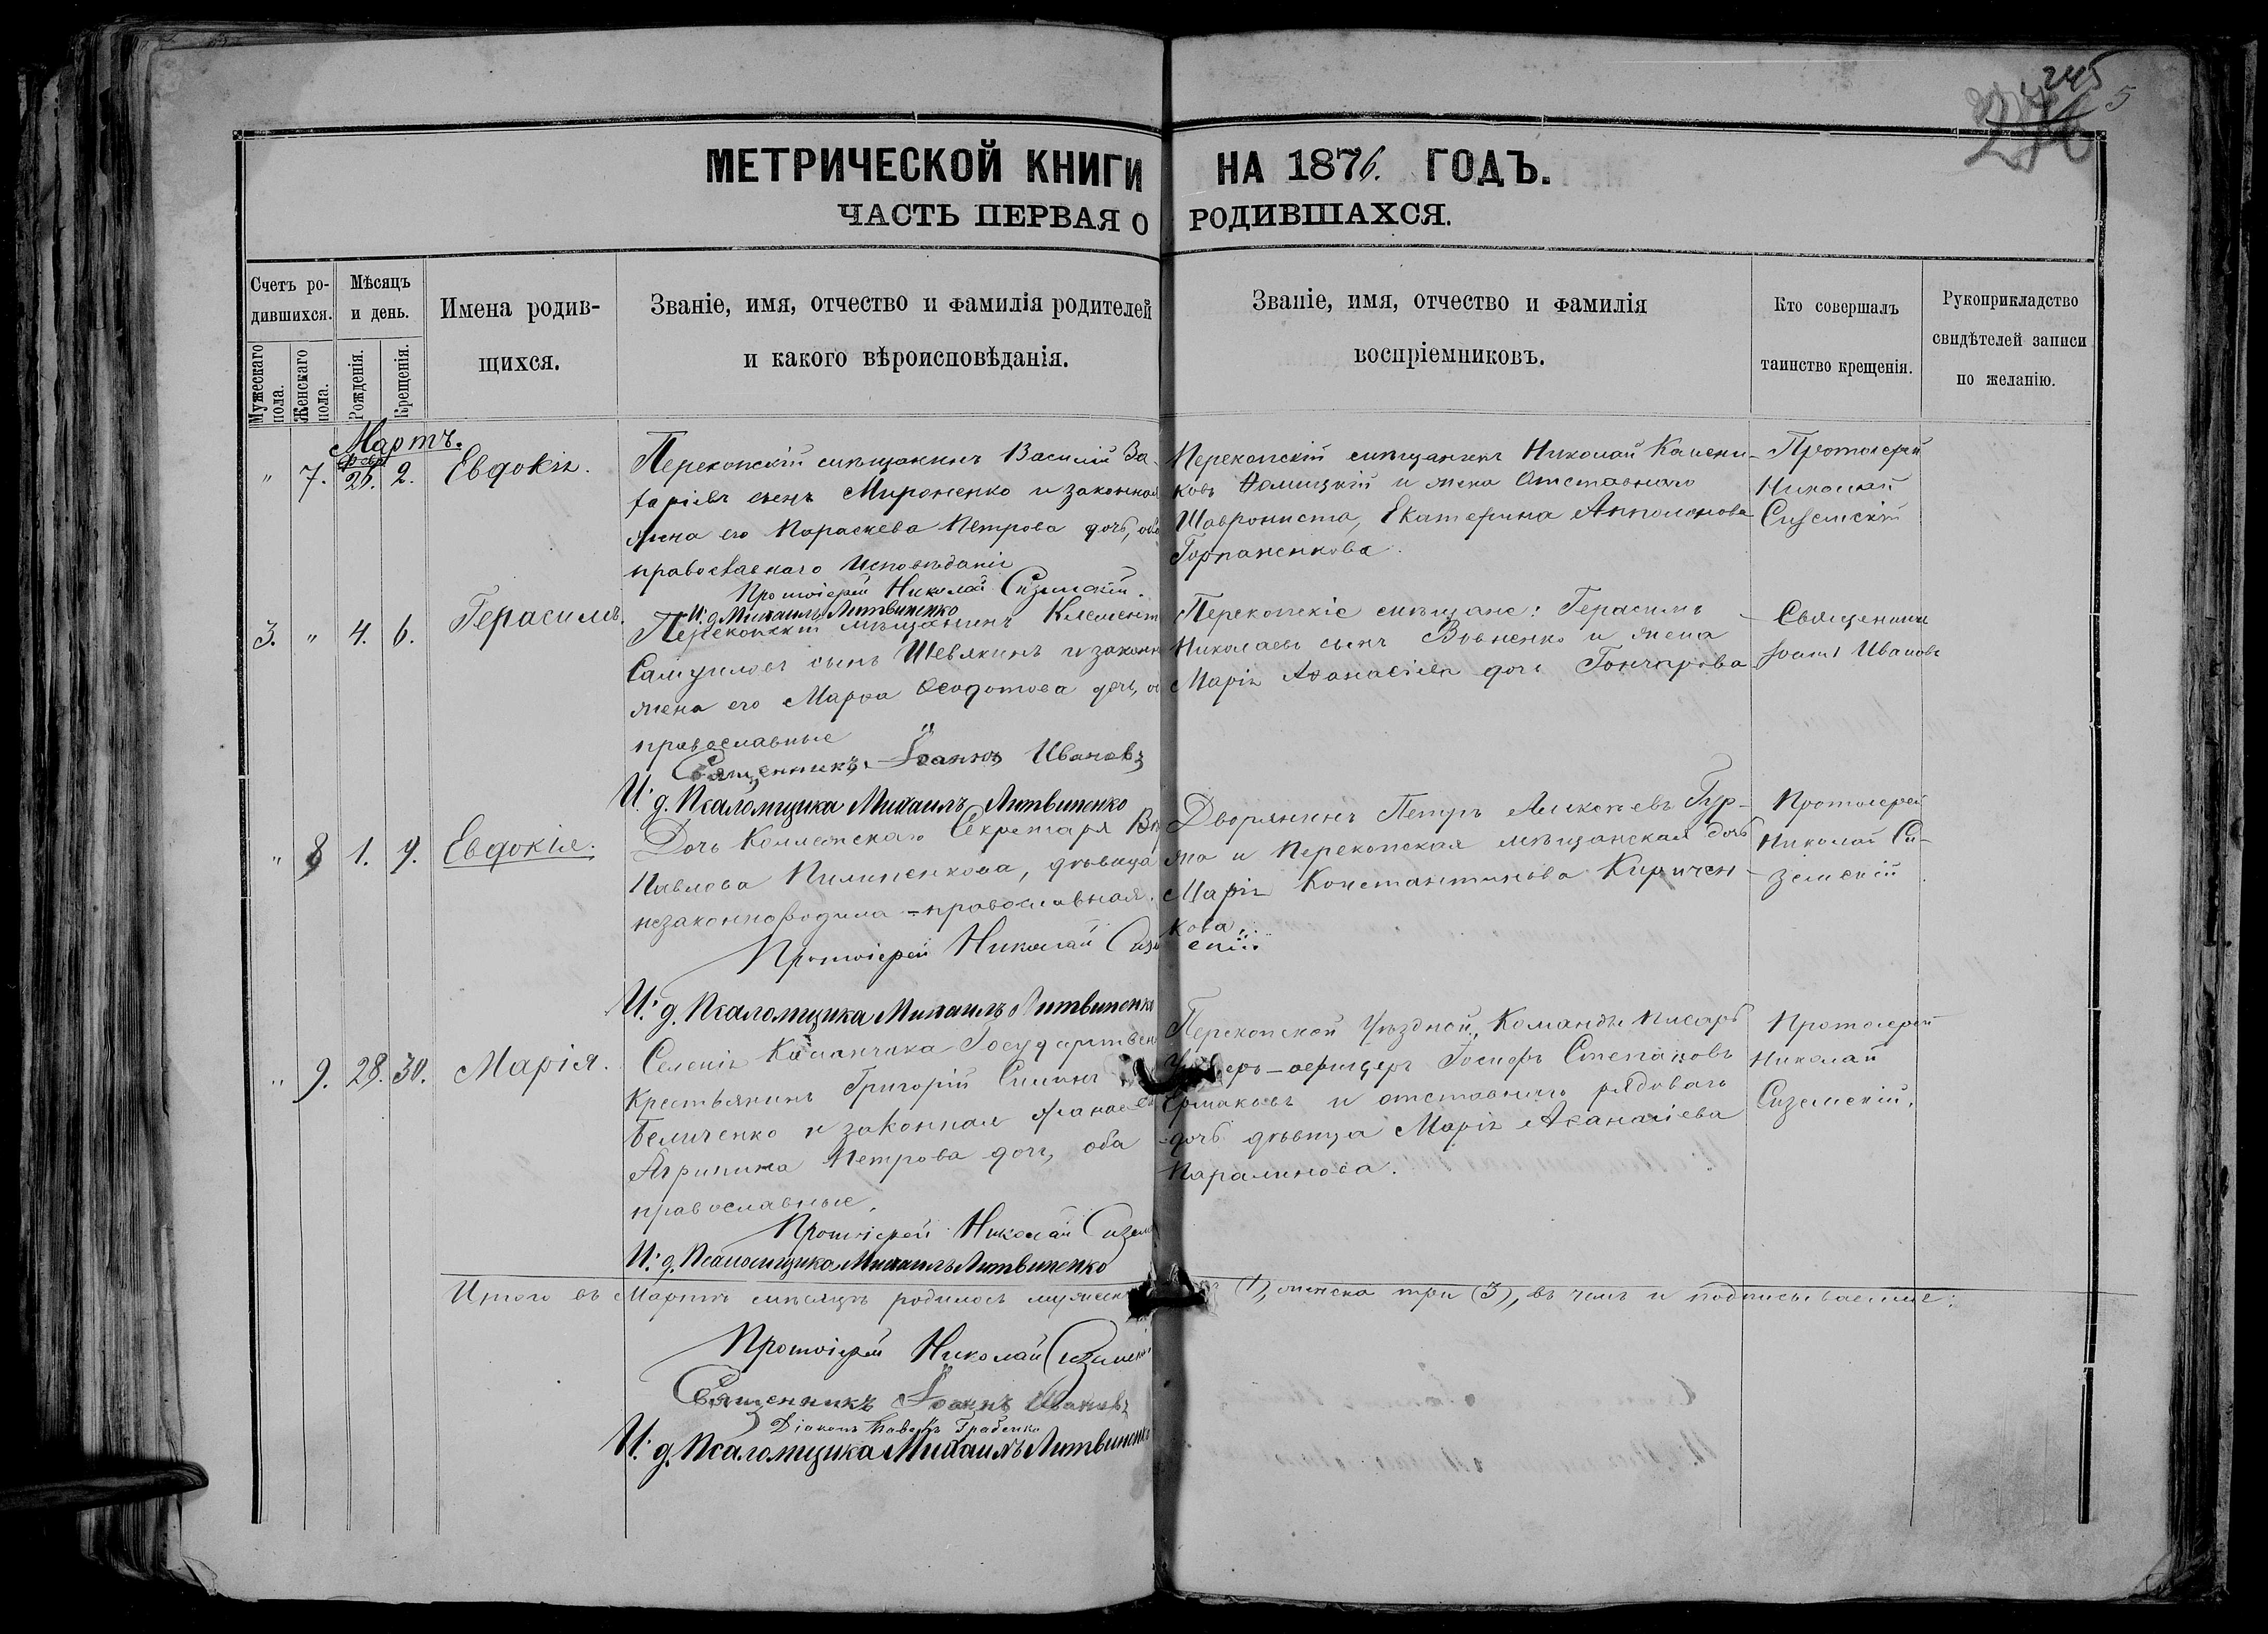 245 5
МЕТРИЧЕСКОЙ КНИГИ НА 1876. ГОДЪ.
ЧАСТЬ ПЕРВАЯ О РОДИВШАХСЯ.
Счетъ ро-
дившихся.
Мужескаго
пола.
Женскаго
пола.
Мѣсяцъ
и день.
Рожденія.
Крещенія.
Имена родив-
щихся.
Званіе, имя, отчество и фамилія родителей
и какого вѣроисповѣданія.
Званіе, имя, отчество и фамилія
воспріемниковъ.
Кто совершалъ
таинство крещенія.
Рукоприкладство
свидѣтелей записи
по желанію.
Мартъ.
" 7. 2. Евдокія.
Перекопскій мѣщанинъ Василій За-
харіевъ сынъ Мироненко и законная
жена его Параскева Петрова дочь, оба
православнаго исповѣданія
Протоіерей Николай Сиземскій.
И. д. Михаилъ Литвиненко
Перекопскій мѣщанинъ Николай
и жена Отставнаго
Екатерина
Горпаненкова.
Протоіерей
Николай
Сиземскій
3. " 4. 6. Герасимъ.
Перекопскій мѣщанинъ Климент
Самуиловъ сынъ Шевякинъ и законн
жена его Марѳа Ѳеодотова дочь, об
православные
Священникъ Іоаннъ Ивановъ
И. д. Псаломщика Михаилъ Литвиненко
Перекопскіе мѣщане: Герасимъ
Николаевъ сынъ Вовненко и жена
Марія Аѳанасіева дочь Гончарова
Священникъ
Іоаннъ Ивановъ
" 8 1. 9. Евдокія.
Дочь Коллежскаго Секретаря
Павлова Пилипенкова, дѣвица
незаконнородила - православная.
Протоіерей Николай Сиземскій.
И. д. Псаломщика Михаилъ Литвиненко
Дворянинъ Петръ Алексѣевъ Гур-
и Перекопская мѣщанская дочь
Марія Константинова Киричен-
кова.
Протоіерей
Николай Си-
земскій
" 9. 28. 30. Марія.
Селенія Каланчака Государствен
Крестьянинъ Григорій Симинъ
Беличенко и законная жена его
Агрипина Петрова дочь, оба
православные,
Протоіерей Николай Сизем
И. д. Псаломщика Михаилъ Литвиненко
Перекопской Уѣздной Команды писарь
Унтеръ-офицеръ Іосифъ Степановъ
Ермаковъ и отставнаго рядоваго
дочь дѣвица Марія Аѳанасіева
Паралинова.
Протоіерей
Николай
Сиземскій.
Итого въ Мартѣ мѣсяцѣ родилось мужеск (1), женска три (3), въ чемъ и подписываемся:
Протоіерей Николай Сиземскі
Священникъ Іоаннъ Ивановъ
Діаконъ Павелъ Грабенко
И. д. Псаломщика Михаилъ Литвиненко